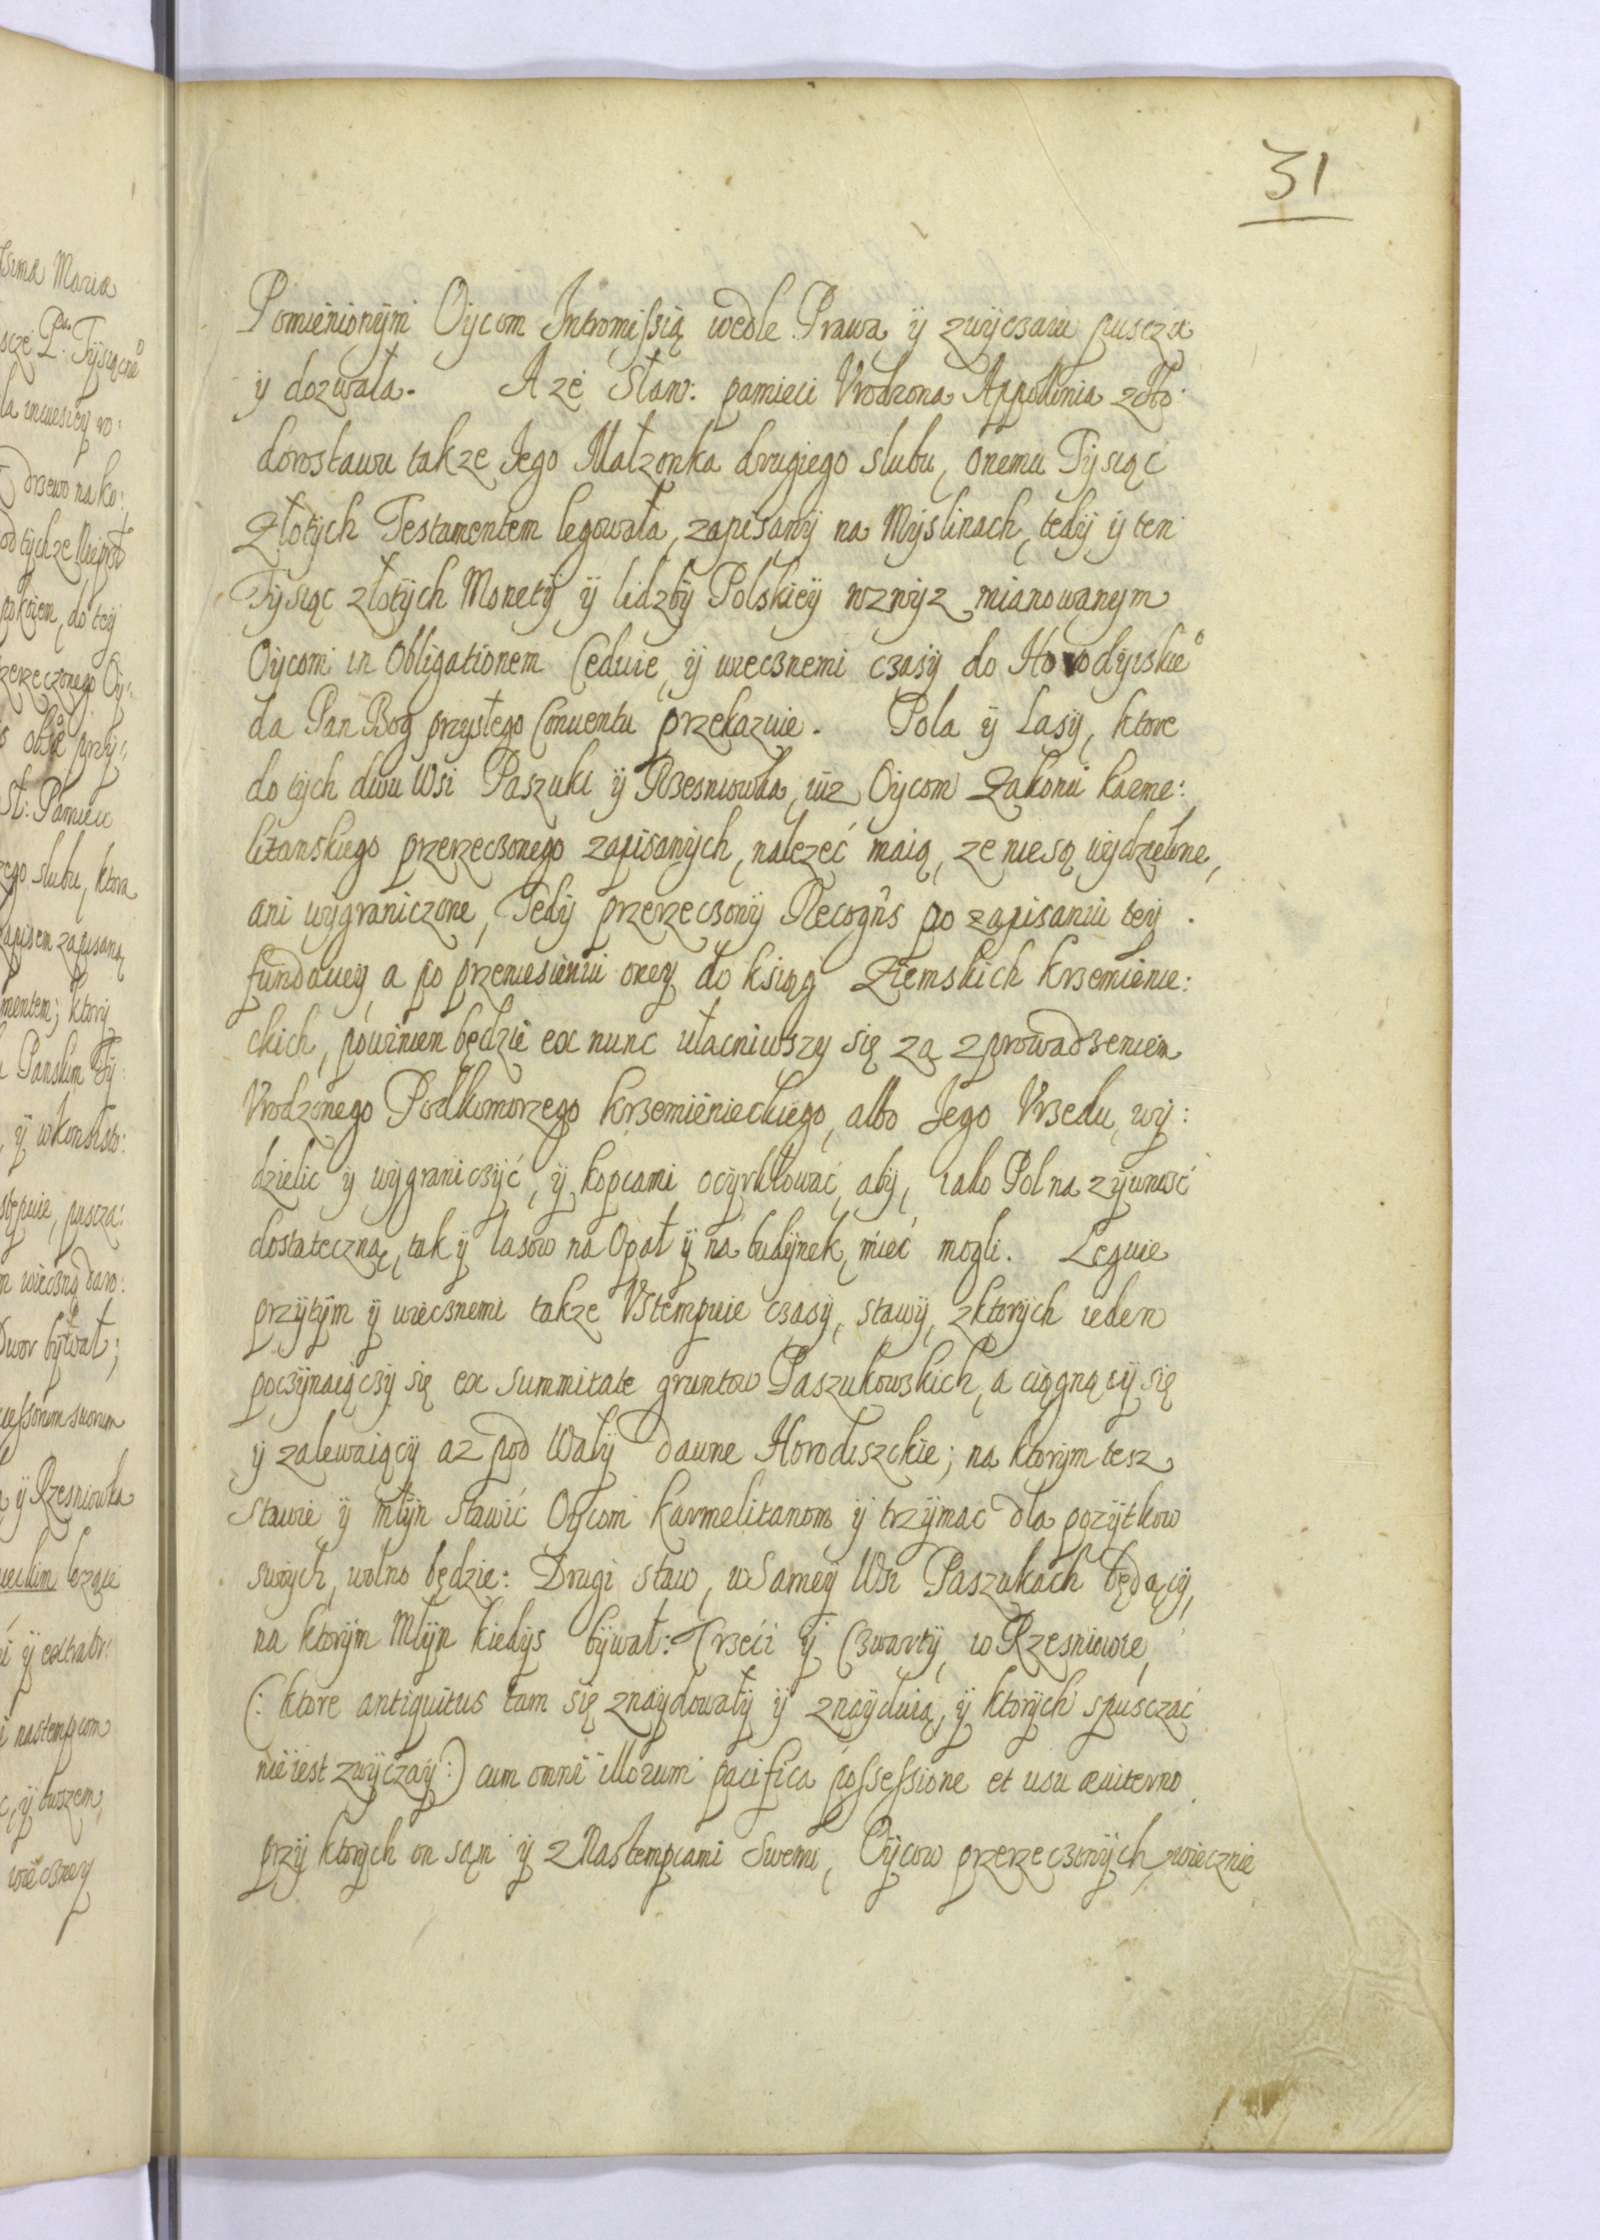 31
Pomienionym Oycom Intromissią wedle Prawa y zwyczaiu puscza
y dozwala. A ze Slaw: pamieci Vrodzona Appolinia zoło:
dorostawu takze Jego Małzonka drugiego slubu, onemu Tysiąc
Złotych Testamentem legowała, zapisany na Myslinach, tedy y ten
Tysiąc złotych Monety y lidzby Polskiey wzwyz mianowanym
Oycom in Obligationem Ceduie, y wiecznemi czasy do Horodyiskieo
da Pan Bog przyszłego Conuentu przekazuie. Pola y Lasy, ktore
do tych dwu Wsi Paszuki y Rzesniowka, iuz Oycom Zakonu karme:
litanskiego przerzeczonego zapisanych, nalezeć maią, ze nie są wydzielone,
ani wygraniczone, Tedy przerzeczony Recogns po zapisaniu tey
fundaciey, a po przeniesieniu oney do ksiąg Ziemskich krzemienie:
ckich, powinien będzie ex nunc ułacniwszy się za zprowadzeniem
Vrodzonego Podkomorzego krzemienieckiego, albo Jego Vrzedu, wy:
dzielic y wygraniczyć, y kopcami ocyrklować, aby, iako Pol na zywność
dostateczną, tak y lasow na Opał y na budynek, mieć mogli. Leguie
przytym y wiecznemi takze Vstempuie czasy, stawy, z ktorych ieden
poczynaiączy się ex summitate gruntow Paszukowskich, a ciągnący się
y zalewaiący az pod Wały dawne Horodiszckie; na ktorym tesz
stawie y młyn stawić Oycom karmelitanom y trzymac dla pozytkow
swych, wolno będzie: Drugi staw, w Samey Wsi Paszukach będący,
na ktorym Młyn kiedys bywał: Trzeci y Czwarty, w Rzesniowie,
(: ktore antiquitus tam się znaydowały y znayduią, y ktorych spusczać
nie iest zwyczay :) cum omni illorum pacifica possessione et usu æuiterno
przy ktorych on sąm y z Nastempcami Swemi, Oycow przerzeczonych, wiecznie